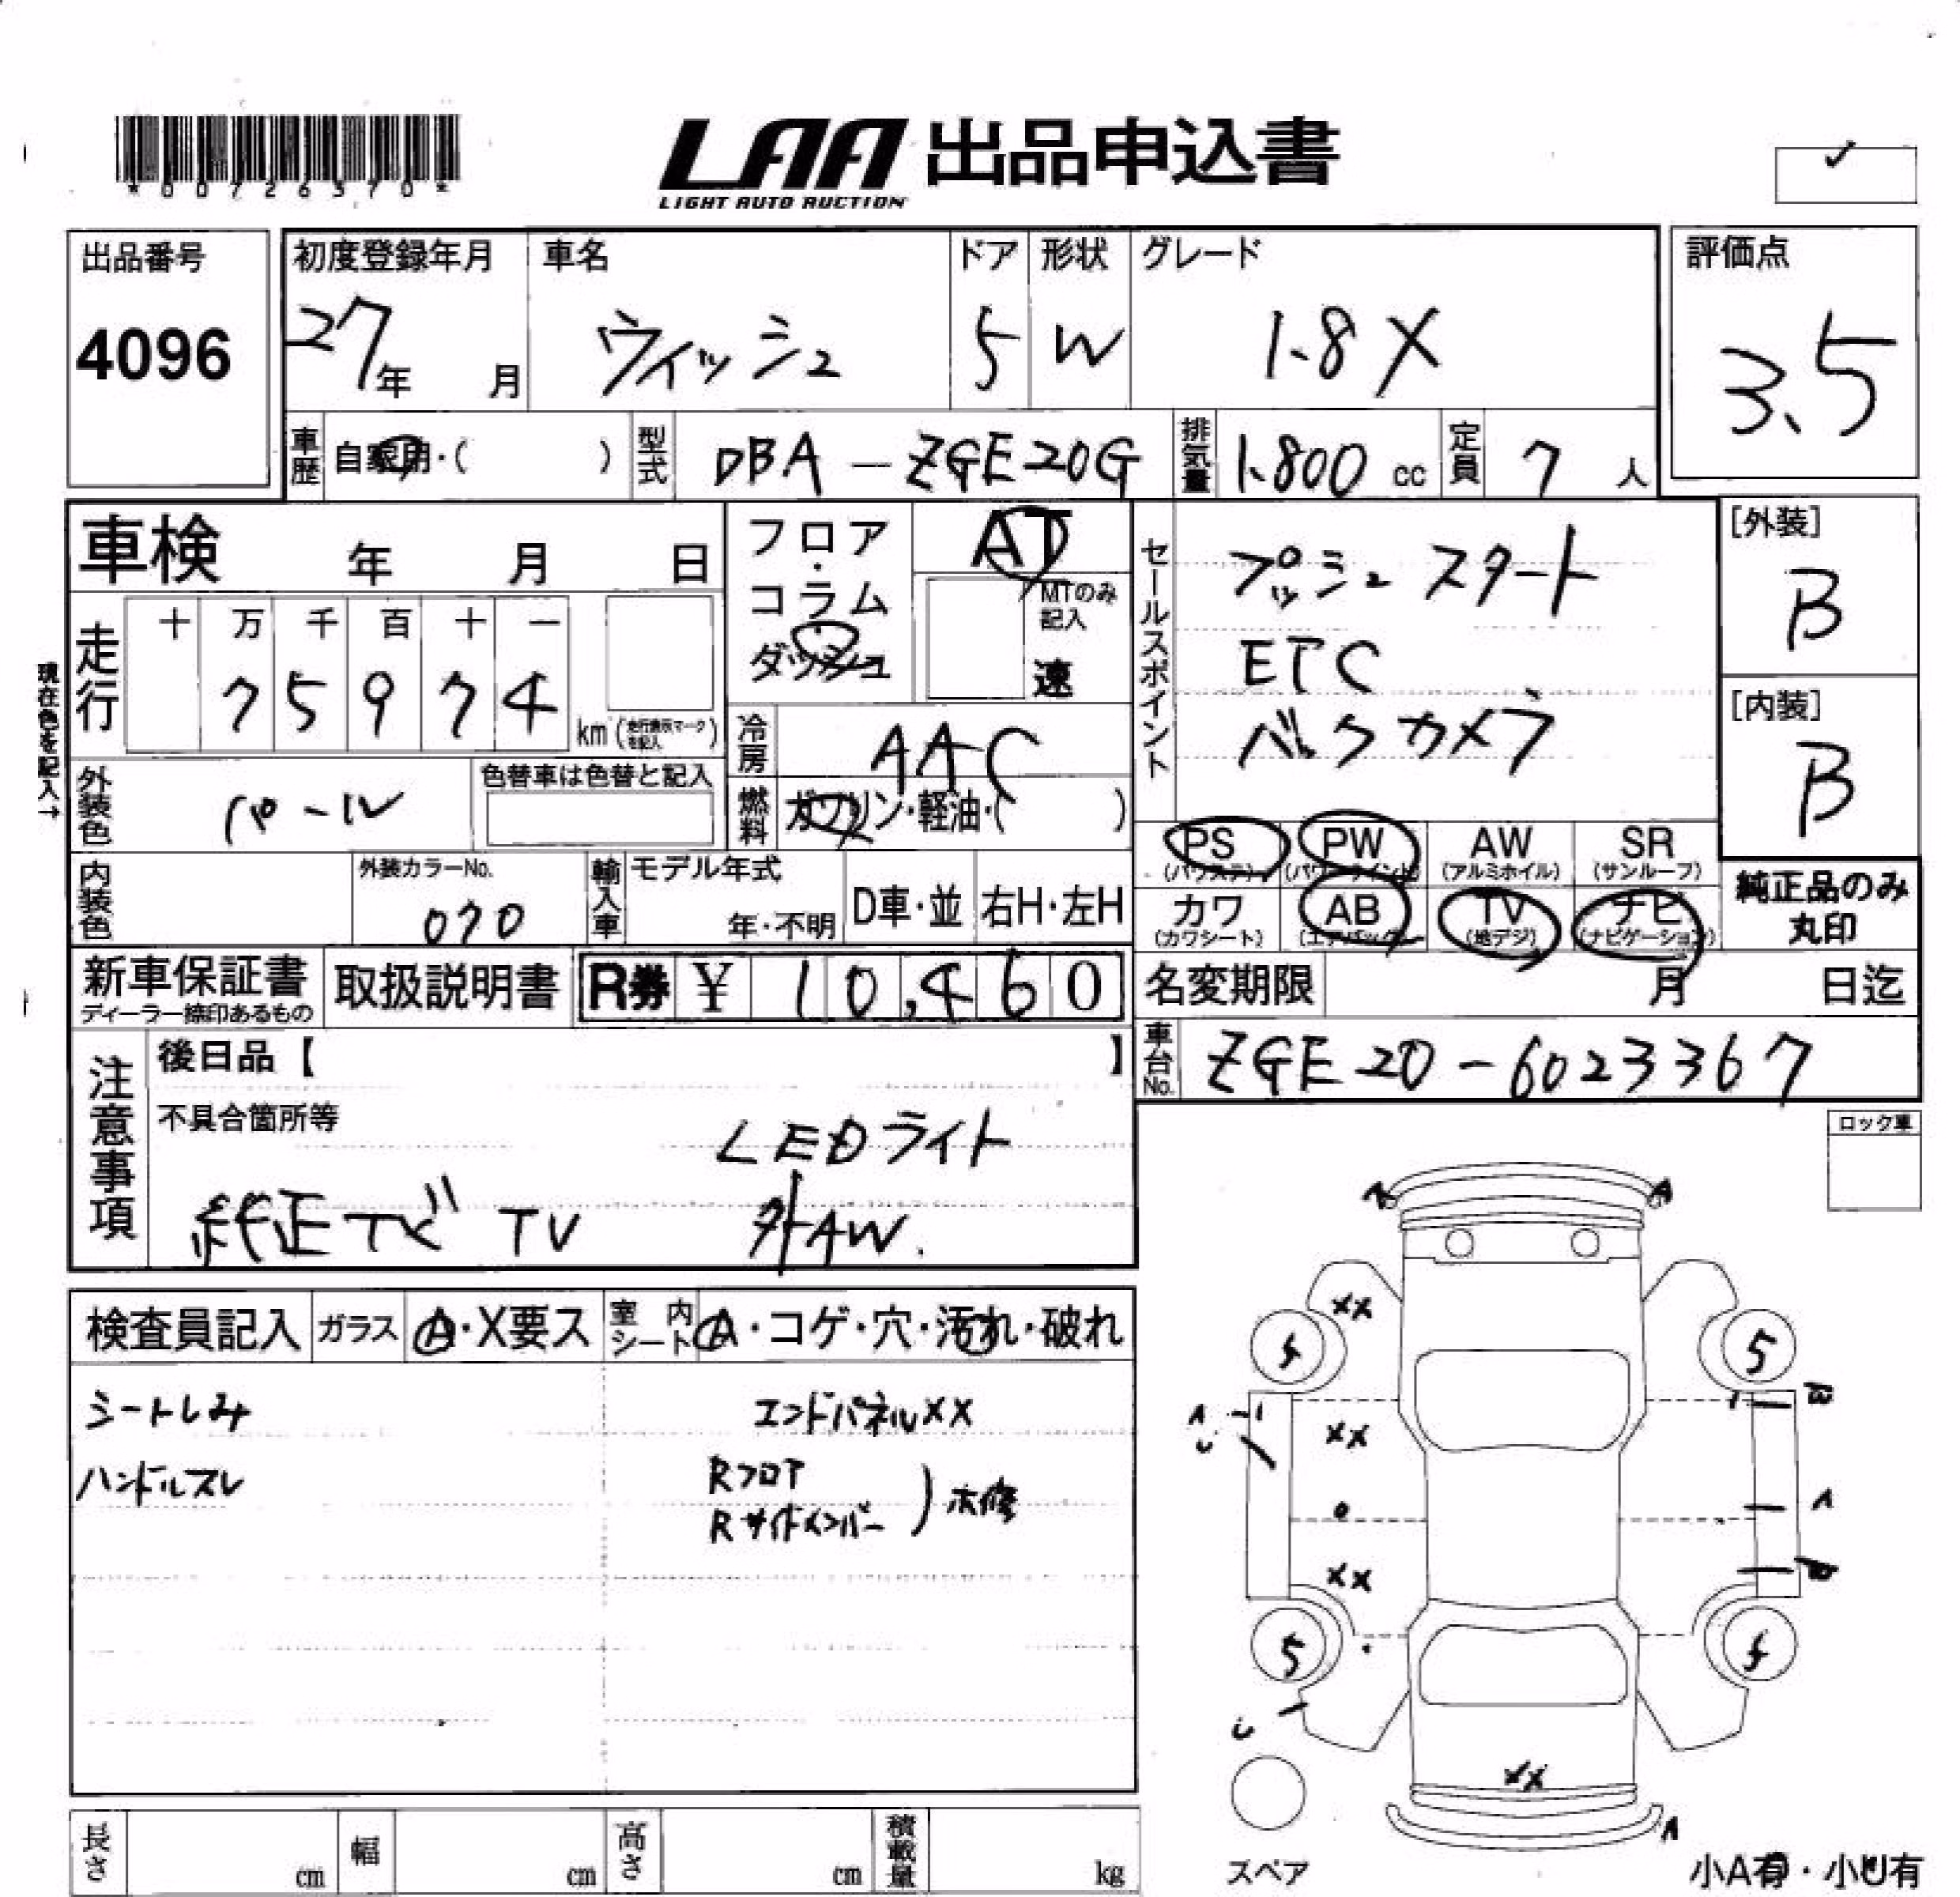 *00726370*
LAA 出品申込書
LIGHT AUTO AUCTION
✓
出品番号
4096
初度登録年月
27年 月
車名
ウィッシュ
ドア
5
形状
W
グレード
1.8X
評価点
3.5
車歴
自家用・( )
型式
DBA-ZGE20G
排気量
1.800 cc
定員
7 人
車検 年 月 日
フロア・コラム・ダッシュ
AT
MTのみ記入
速
セールスポイント
プッシュスタート
ETC
バックカメラ
[外装]
B
[内装]
B
現在色を記入→
走行
十 万 千 百 十 一
7 5 9 7 4
km (走行表示マークを記入)
冷房
AAC
燃料
ガソリン・軽油・( )
外装色
パール
色替車は色替と記入
内装色
外装カラーNo.
070
輸入車
モデル年式
年・不明
D車・並
右H・左H
PS (パワステ)
PW (パワーウインド)
AW (アルミホイル)
SR (サンルーフ)
カワ (カワシート)
AB (エアバック)
TV (地デジ)
ナビ (ナビゲーション)
純正品のみ
丸印
新車保証書
ディーラー捺印あるもの
取扱説明書
R券 ¥ 10,460
名変期限 月 日迄
車台No.
ZGE20-6023367
注意事項
後日品【 】
不具合箇所等
LEDライト
純正ナビ TV 外AW.
ロック車
検査員記入
ガラス
A・X要ス
室内シート
A・コゲ・穴・汚れ・破れ
シートしみ
エンドパネルXX
ハンドルスレ
Rフロア
Rサイドメンバー
A A
XX
4 5
A U
XX
W
A
XX
W
5 4
U
XX
A
スペア
小A有・小U有
長さ cm
幅 cm
高さ cm
積載量 kg